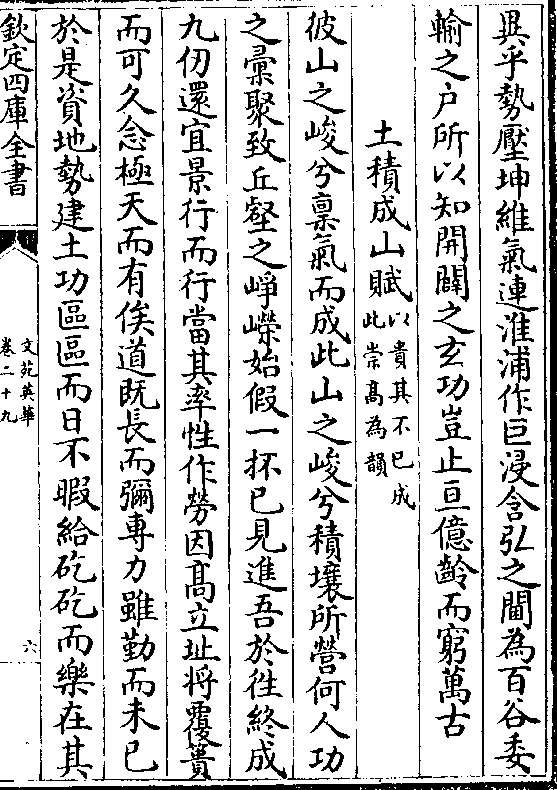 異乎勢壓坤維氣連淮浦作巨浸含弘之閫為百谷委
輸之户所以知開闢之玄功豈止亘億齡而窮萬古
土積成山賦以貴其不已成此崇髙為韻
彼山之峻兮禀氣而成此山之峻兮積壤所營何人功
之彚聚致丘壑之崢嶸始假一抔已見進吾於徃終成
九仞還宜景行而行當其率性作勞因髙立址将覆蕢
而可久念極天而有俟道既長而彌専力雖勤而未已
於是資地勢建土功區區而日不暇給矻矻而樂在其
欽定四庫全書
文苑英華
卷二十九
六